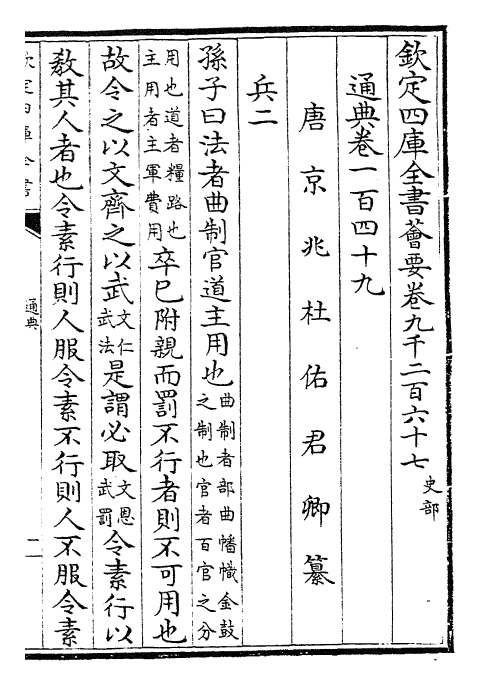 欽定四庫全書薈要卷九千二百六十七 史部
通典卷一百四十九
唐京兆杜佑君卿纂
兵二
孫子曰法者曲制官道主用也曲制者部曲幡幟金鼓之制也官者百官之分
用也道者糧路也主用者主軍費用卒巳附親而罰不行者則不可用也
故令之以文齊之以武文仁武法是謂必取文恩武罰令素行以
敎其人者也令素行則人服令素不行則人不服令素
欽定四庫全書
通典
二